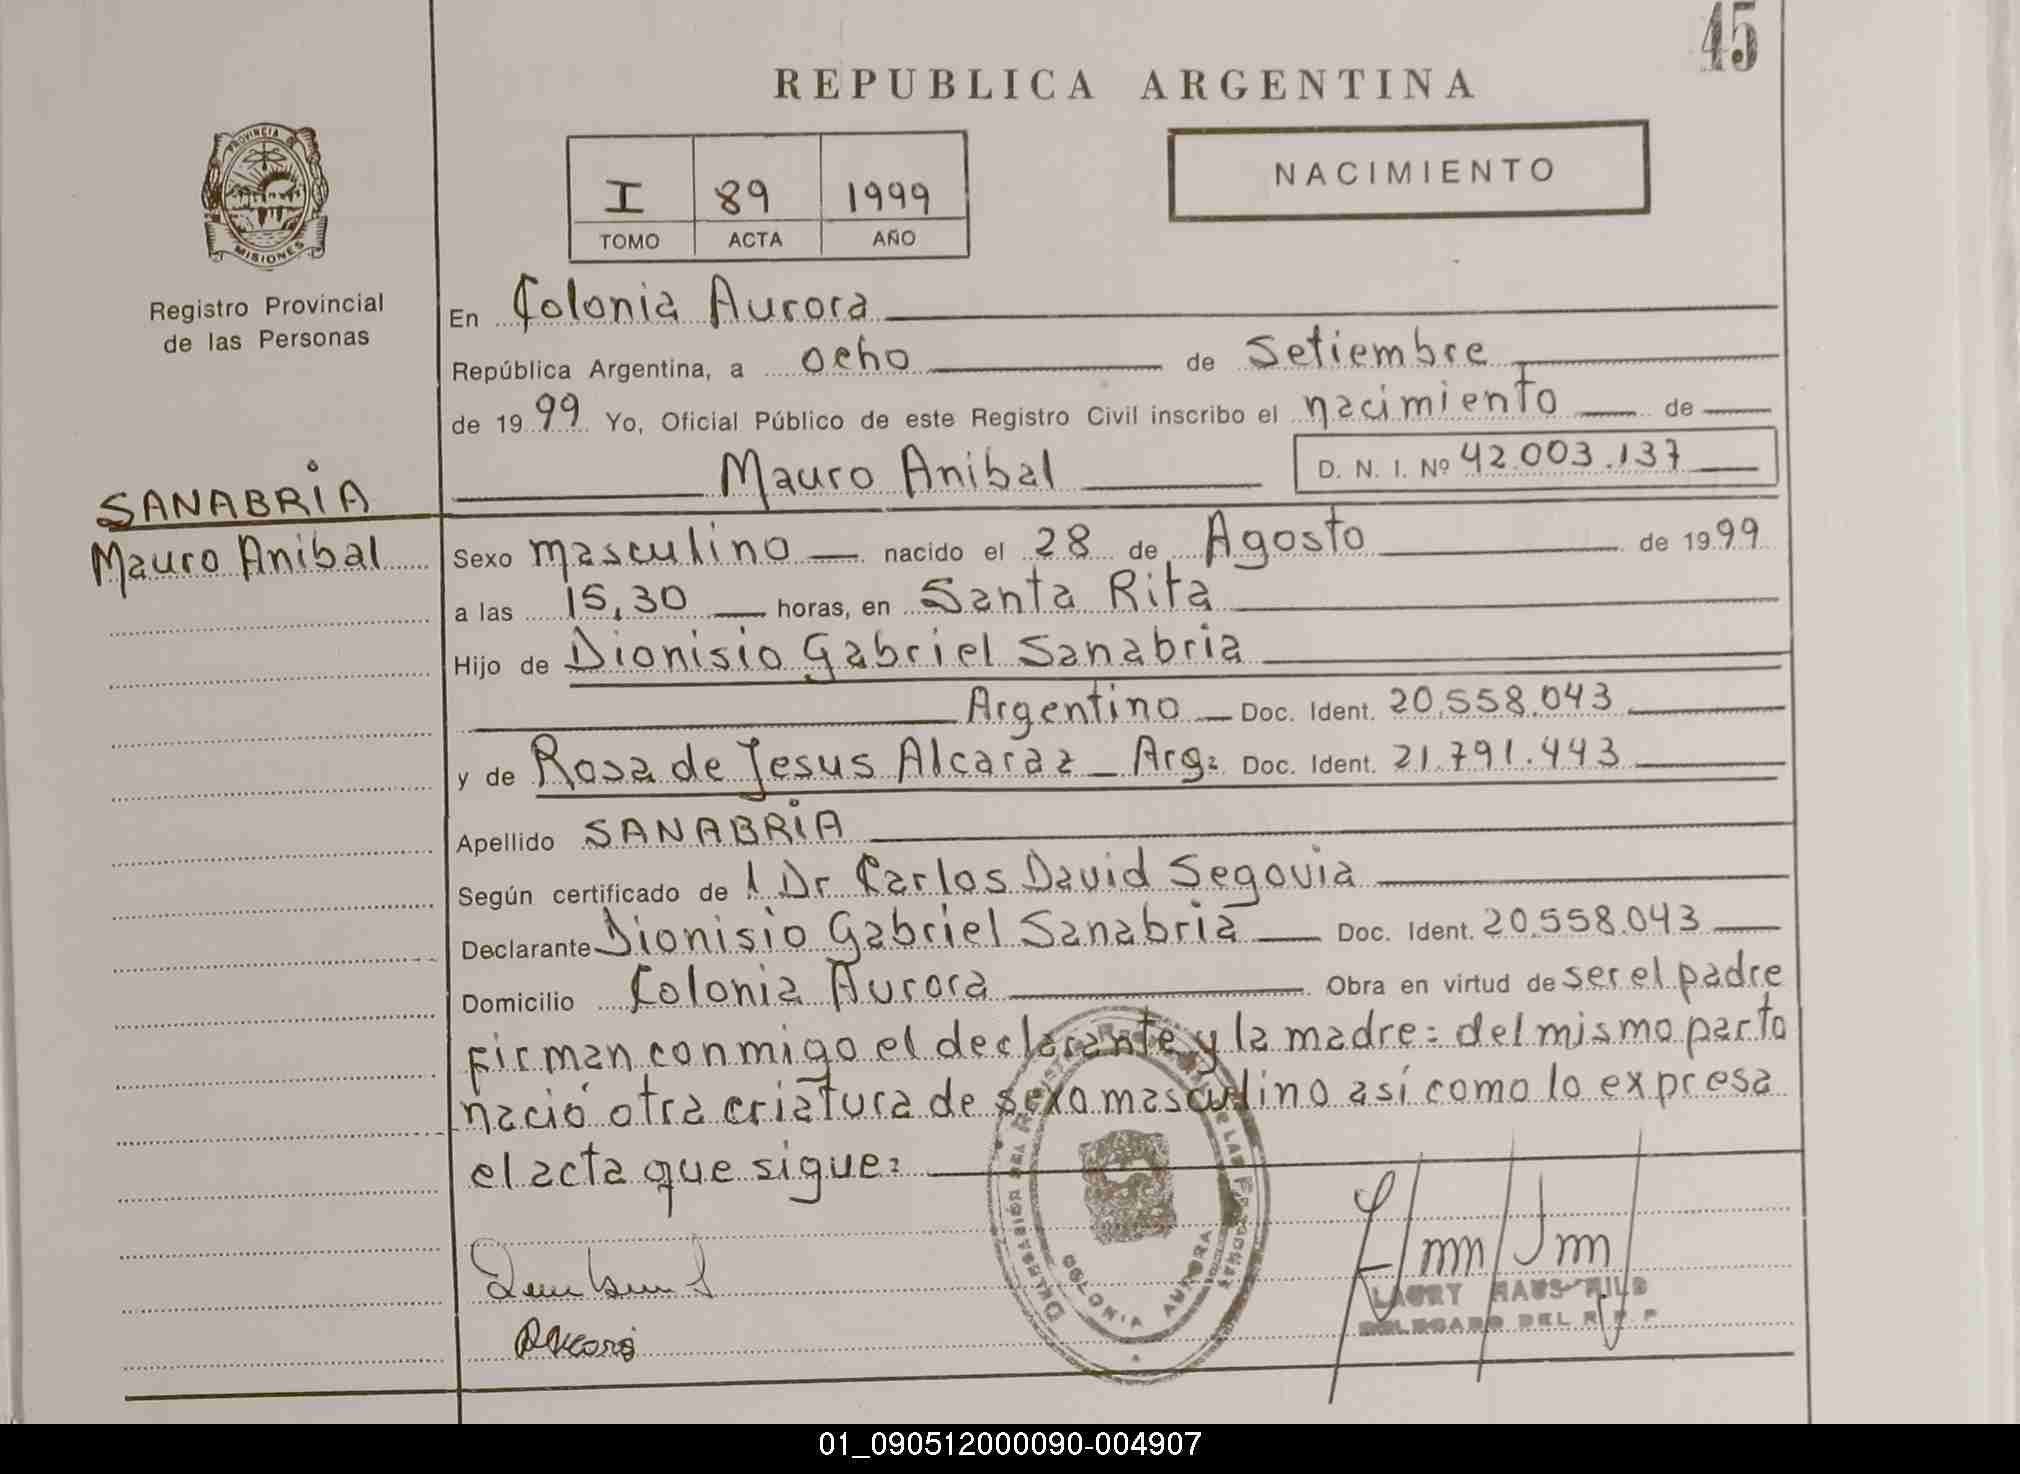 45
REPUBLICA ARGENTINA
PROVINCIA DE
MISIONES
Registro Provincial
de las Personas
I 89 1999
TOMO ACTA AÑO
NACIMIENTO
En Colonia Aurora
República Argentina, a ocho de Setiembre
de 1999 Yo, Oficial Público de este Registro Civil inscribo el nacimiento de
Mauro Anibal D. N. I. Nº 42.003.137
SANABRIA
Mauro Anibal
Sexo masculino nacido el 28 de Agosto de 1999
a las 15,30 horas, en Santa Rita
Hijo de Dionisio Gabriel Sanabria
Argentino Doc. Ident. 20.558.043
y de Rosa de Jesus Alcaraz - Arg: Doc. Ident. 21.791.443
Apellido SANABRIA
Según certificado de l Dr Carlos David Segovia
Declarante Dionisio Gabriel Sanabria Doc. Ident. 20.558.043
Domicilio Colonia Aurora Obra en virtud de ser el padre
firman conmigo el declarante y la madre: del mismo parto
nació otra criatura de sexo masculino así como lo expresa
el acta que sigue:
COLONIA AURORA
DELEGADO DEL R.P.P.
01_090512000090-004907